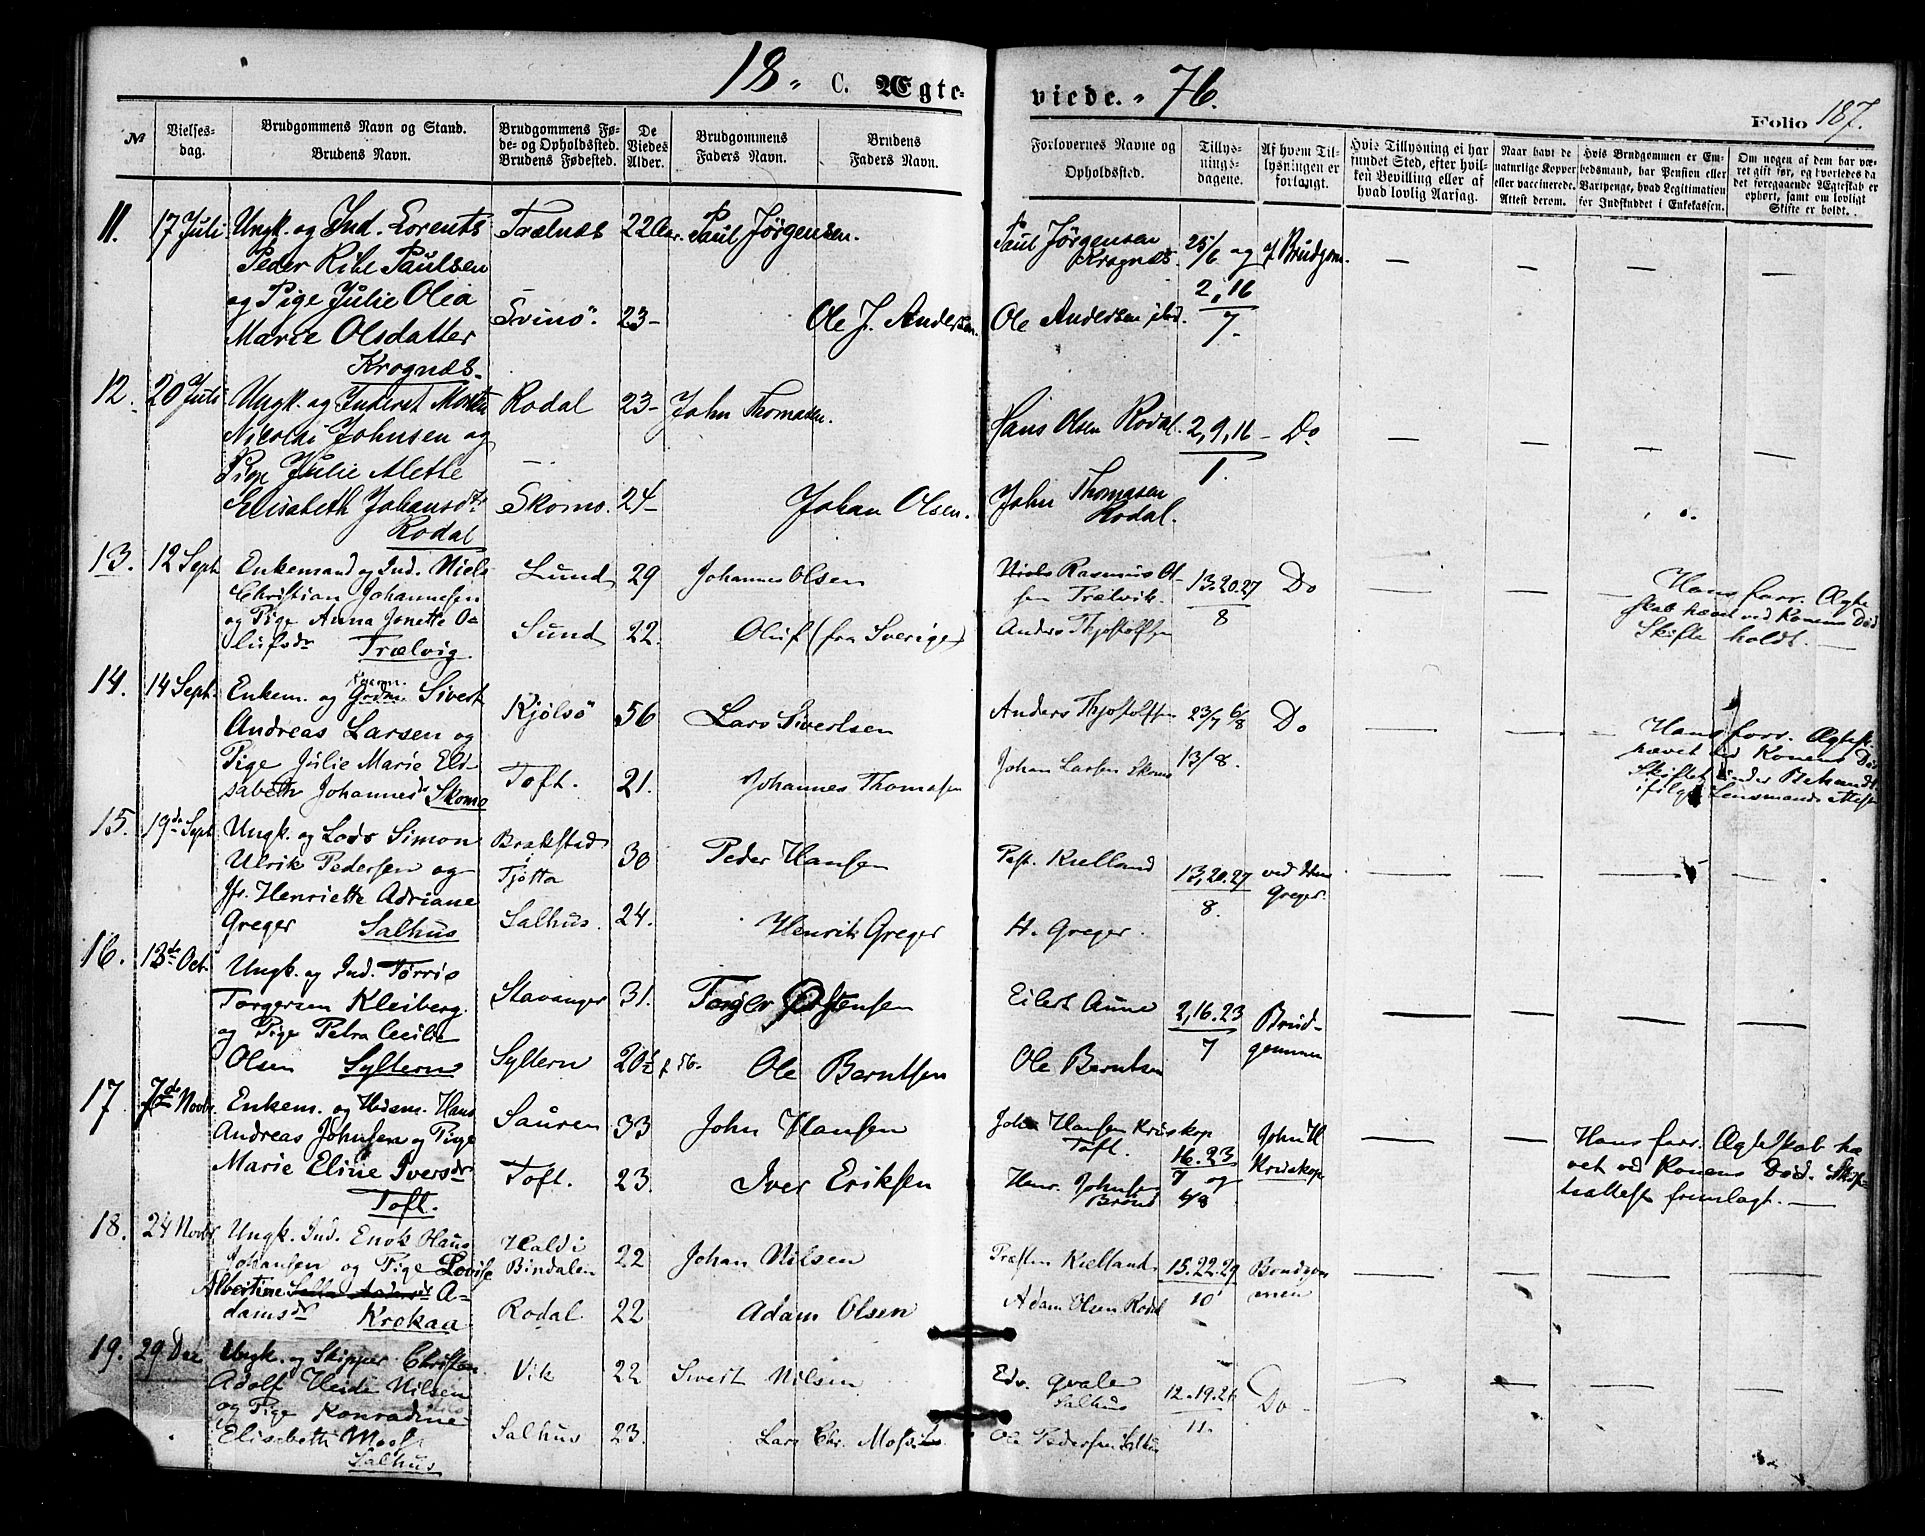 18 " C. Ægteviede. " 76.
Folio 187.
№
Vielsesdag.
Brudgommens Navn og Stand.
Brudens Navn.
Brudgommens Føde- og Opholdssted.
Brudens Fødested.
De Viedes Alder.
Brudgommens Faders Navn.
Brudens Faders Navn.
Forlovernes Navne og Opholdssted.
Tillysningsdagene.
Af hvem Tillysningen er forlangt.
Hvis Tillysning ei har fundet Sted, efter hvilken Bevilling eller af hvad lovlig Aarsag.
Naar havt de naturlige Kopper eller vaccinerede.
Attest derom.
Hvis Brudgommen er Embedsmand, har Pension eller Vartpenge, hvad Legitimation for Indskuddet i Enkekassen.
Om nogen af dem har været gift før, og hvorledes da det foregaaende Ægteskab er ophørt, samt om lovligt Skifte er holdt.
11. 17 Juli Ungk. og Ind. Lorents Trælnæs 22 Aar. Paul Jörgensen. Paul Jörgensen 25/6 og f Brudgom. — — — —
Peder Rihe Paulsen Krognæs.
og Pige Julie Olea 2, 16
Marie Olsdatter Svinö. 23 - Ole J. Andersen. Ole Andersen ibd. 7.
Krognæs.
12. 20 Juli Ungk. og Inderst Morten Rodal 23 - John Thomasen. Hans Olsen Rodal. 2, 9, 16 - Do — — — —
Nicolai Johnsen og
Pige Julie Alette 1.
Elisabeth Johansdtr Skomo. 24 - Johan Olsen. John Thomasen
Rodal Rodal.
13. 12 Sept Enkemand og Ind. Niels Lund 29 Johannes Olsen Niels Rasmus Ol- 13.20.27 Do — — — Hans forr. Ægte
Christian Johannesen sen Trælvik. 8 skab hævet ved Konens Död
og Pige Anna Jonette O- Sund 22. Oluf (fra Sverige) Anders Thjostolfsen Skifte holdt. —
lufsdr Trælvig.
14. 14 Sept. Enkem. og Grdm. Sivert Kjølsö 56 Lars Sivertsen Anders Thjostolfsen 23/7 6/8 Do — — — Hans forr. Ægtesk.
Andreas Larsen og hævet ved Konens Död
Pige Julie Marie Eli- Toft. 21. Johannes Thomasen Johan Larsen Skomo 13/8. Skiftet under Behandl.
sabeth Johannesdr Skomo ifölge Lensmands Attest
15. 19de Sept Ungk. og Lods Simon Brækstad 30 Peder Hansen Pæst. Kielland 13,20.27 ved Hen — — —
Ulrik Pedersen og Tjötta 8. Greger.
Jfr. Henriette Adriane
Greger Salhus Salhus. 24. Henrik Greger H. Greger.
16. 13de Oct. Ungk. og Ind. Törris Stavanger 31. Torger Eilert Aune 2,16.23 Brud- — — — —
Torgersen Kleiberg. 7 gommen
og Pige Petra Cecilie
Olsen Syltern Syltern 20½ f 56. Ole Berntsen Ole Berntsen
17 7de Novbr. Enkem. og Hdsm. Hans Sauren 33 John Hansen John Hansen Kruskop John H — — Hans forr. Ægteskab hæ
Andreas Johnsen og Pige Toft. 16.23 Kruskop vet ved Konens Död. Skif-
Marie Eline Iversdr Toft. 23. Iver Eriksen Hans Johnsen 7 og teattest fremlagt. —
Toft. Brönd 6/8
18. 24 Novbr Ungk. Ind. Enok Hans Haldi 22 Johan Nilsen Præsten Kielland 15.22.29 Brudgom — — — —
Johansen og Pige Lovise Bindalen 10 men
Albertine A-
damsdr Krokaa Rodal. 22 Adam Olsen Adam Olsen Rodal
19. 29 Dec Ungk. og Skipper Christen Vik 22 Sivert Nilsen Edv. Qvale 12.19.26 Do — — — —
Adolf Heide Nilsen Salhus 11.
og Pige Konradine
Elisabeth Moss Salhus 23. Lars Chr. Moss Ole Pedersen Salhus
Salhus